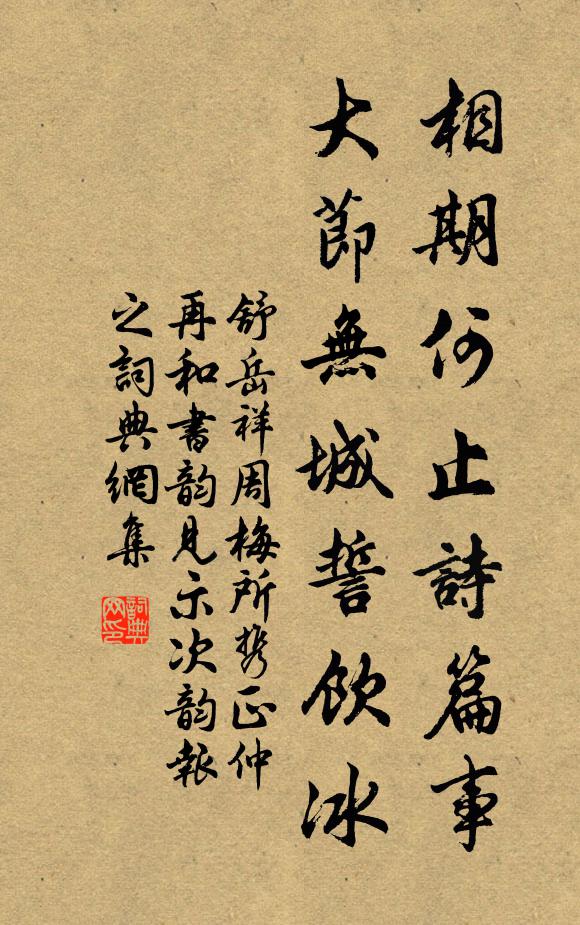 相期何止詩篇事
大節無城誓飲冰
舒岳祥周梅所携正仲
再和書韵見示次韵報
之詞典網集
詞典
网印